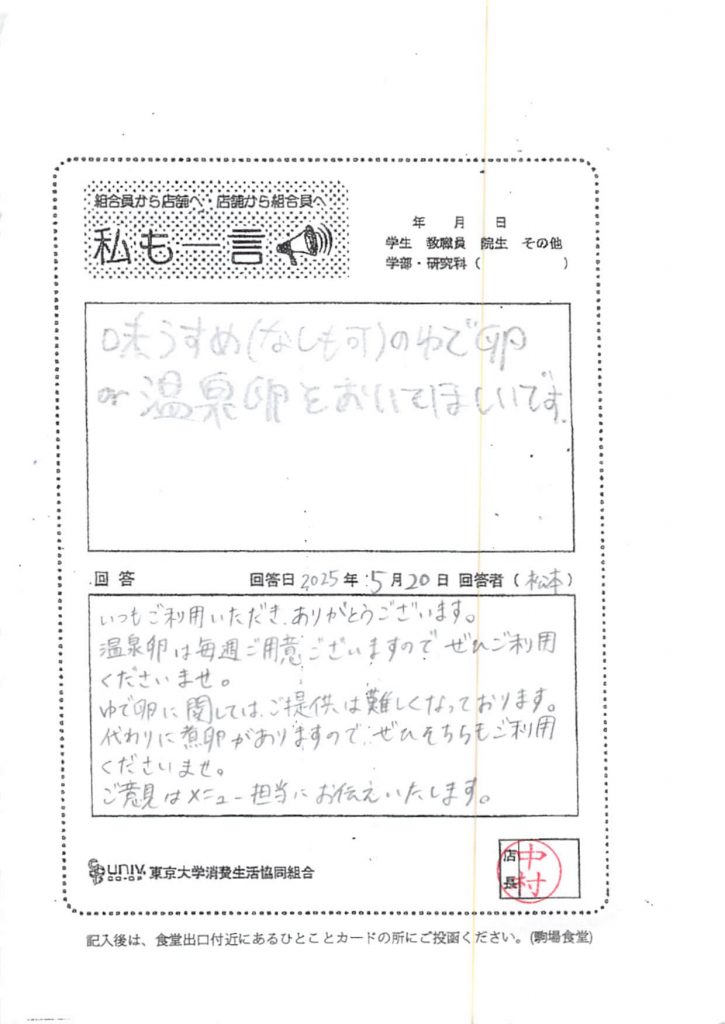 組合員から店舗へ・店舗から組合員へ
私も一言
年 月 日
学生 教職員 院生 その他
学部・研究科( )
味うすめ(なしも可)のゆで卵
or 温泉卵をおいてほしいです.
回答 回答日 2025年 5月 20日 回答者(松本)
いつもご利用いただき、ありがとうございます。
温泉卵は毎週ご用意ございますので ぜひご利用
くださいませ。
ゆで卵に関しては、ご提供は難しくなっております。
代わりに煮卵がありますので、ぜひそちらもご利用
くださいませ。
ご意見はメニュー担当にお伝えいたします。
UNIV. CO-OP 東京大学消費生活協同組合
店長 中村
記入後は、食堂出口付近にあるひとことカードの所にご投函ください。(駒場食堂)